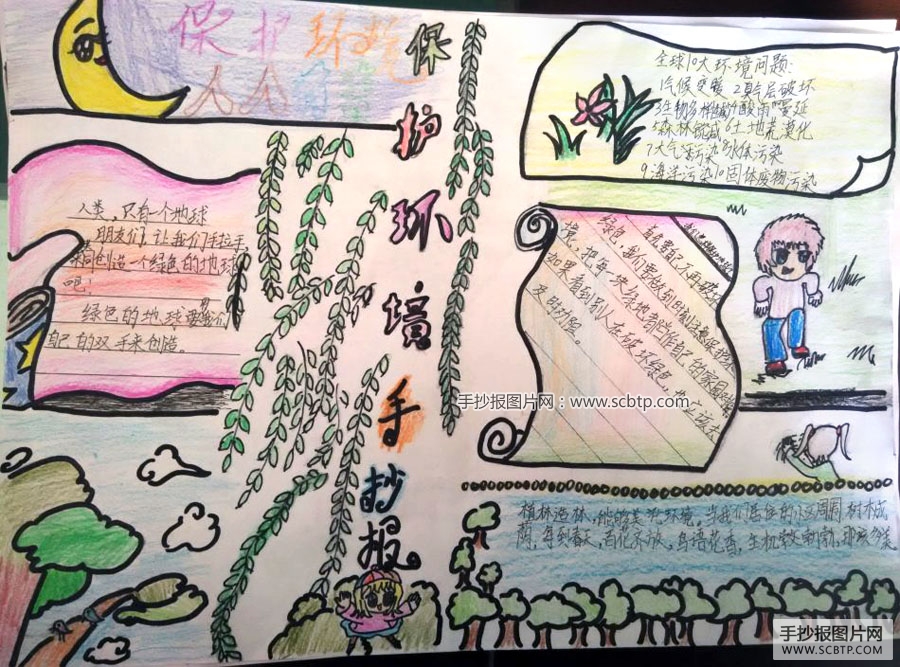 保护环境
人人
保护环境手抄报
全球10大环境问题：
1气候变暖 2臭气层破坏
3生物多样性减少4酸雨蔓延
5森林锐减6土地荒漠化
7大气污染8水体污染
9海洋污染10固体废物污染
人类，只有一个地球
朋友们，让我们手拉手，
共同创造一个绿色的地球
吧！
绿色的地球要我们用
自己的双手来创造。
绿色，我们要做到时刻注意保护环
境，把每一块绿地都当作自己的家园
如果看到别人在破坏绿色，
手抄报图片网：www.scbtp.com
植林造林，能够美化环境，当我们居住的小区周围树木成
荫，每到春天，百花齐放，鸟语花香，生机勃勃
手抄报图片网
WWW.SCBTP.COM